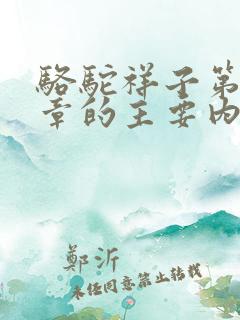 駱駝祥子第
章的主要內
鄭沂
未經同意禁止轉載